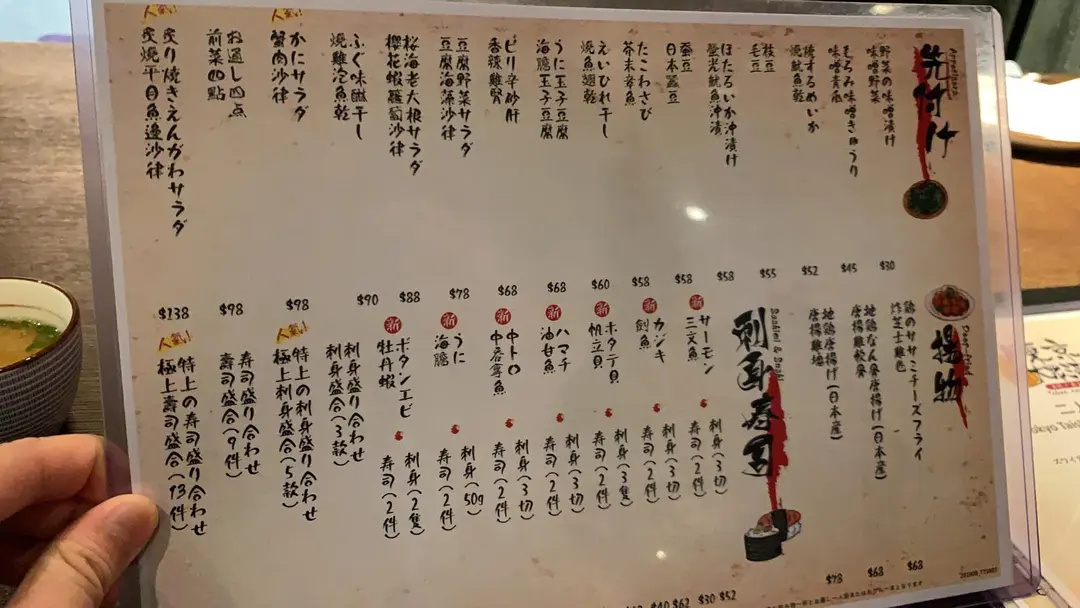 先付け
Appetizers
野菜の味噌漬け
味噌野菜
$30
もろみ味噌きゅうり
味噌青瓜
$45
焼するめいか
燒魷魚乾
$52
枝豆
毛豆
$55
ほたるいか沖漬け
螢光魷魚沖漬
$58
蚕豆
日本蠶豆
$58
たこわさび
芥末章魚
$58
えいひれ干し
燒魚翅乾
$60
うに玉子豆腐
海膽玉子豆腐
$68
ピリ辛砂肝
香辣雞腎
$68
豆腐野菜サラダ
豆腐海藻沙律
$78
桜海老大根サラダ
櫻花蝦蘿蔔沙律
$88
ふぐ味醂干し
燒雞泡魚乾
$90
人気い
かにサラダ
蟹肉沙律
$98
お通し四点
前菜四點
$98
人気い
炙り焼きえんがわサラダ
炙燒平目魚邊沙律
$138
揚物
鶏のササミチーズフライ
炸芝士雞包
$68
地鶏なん骨唐揚げ(日本産)
唐揚雞軟骨
$68
地鶏唐揚げ(日本産)
唐揚雞塊
$78
刺身寿司
Sashimi & Sushi
新
サーモン
三文魚
刺身(3切)
寿司(2件)
新
カジキ
劍魚
刺身(3切)
寿司(2件)
新
ホタテ貝
帆立貝
刺身(3隻)
寿司(2件)
新
ハマチ
油甘魚
刺身(3切)
寿司(2件)
新
中トロ
中吞拿魚
刺身(3切)
寿司(2件)
新
うに
海膽
刺身(50g)
寿司(2件)
新
ボタンエビ
牡丹蝦
刺身(2隻)
寿司(2件)
刺身盛り合わせ
刺身盛合(3款)
人気い
特上の刺身盛り合わせ
極上刺身盛合(5款)
寿司盛り合わせ
壽司盛合(9件)
人気い
特上の寿司盛り合わせ
極上壽司盛合(13件)
$40 $62
$30 $52